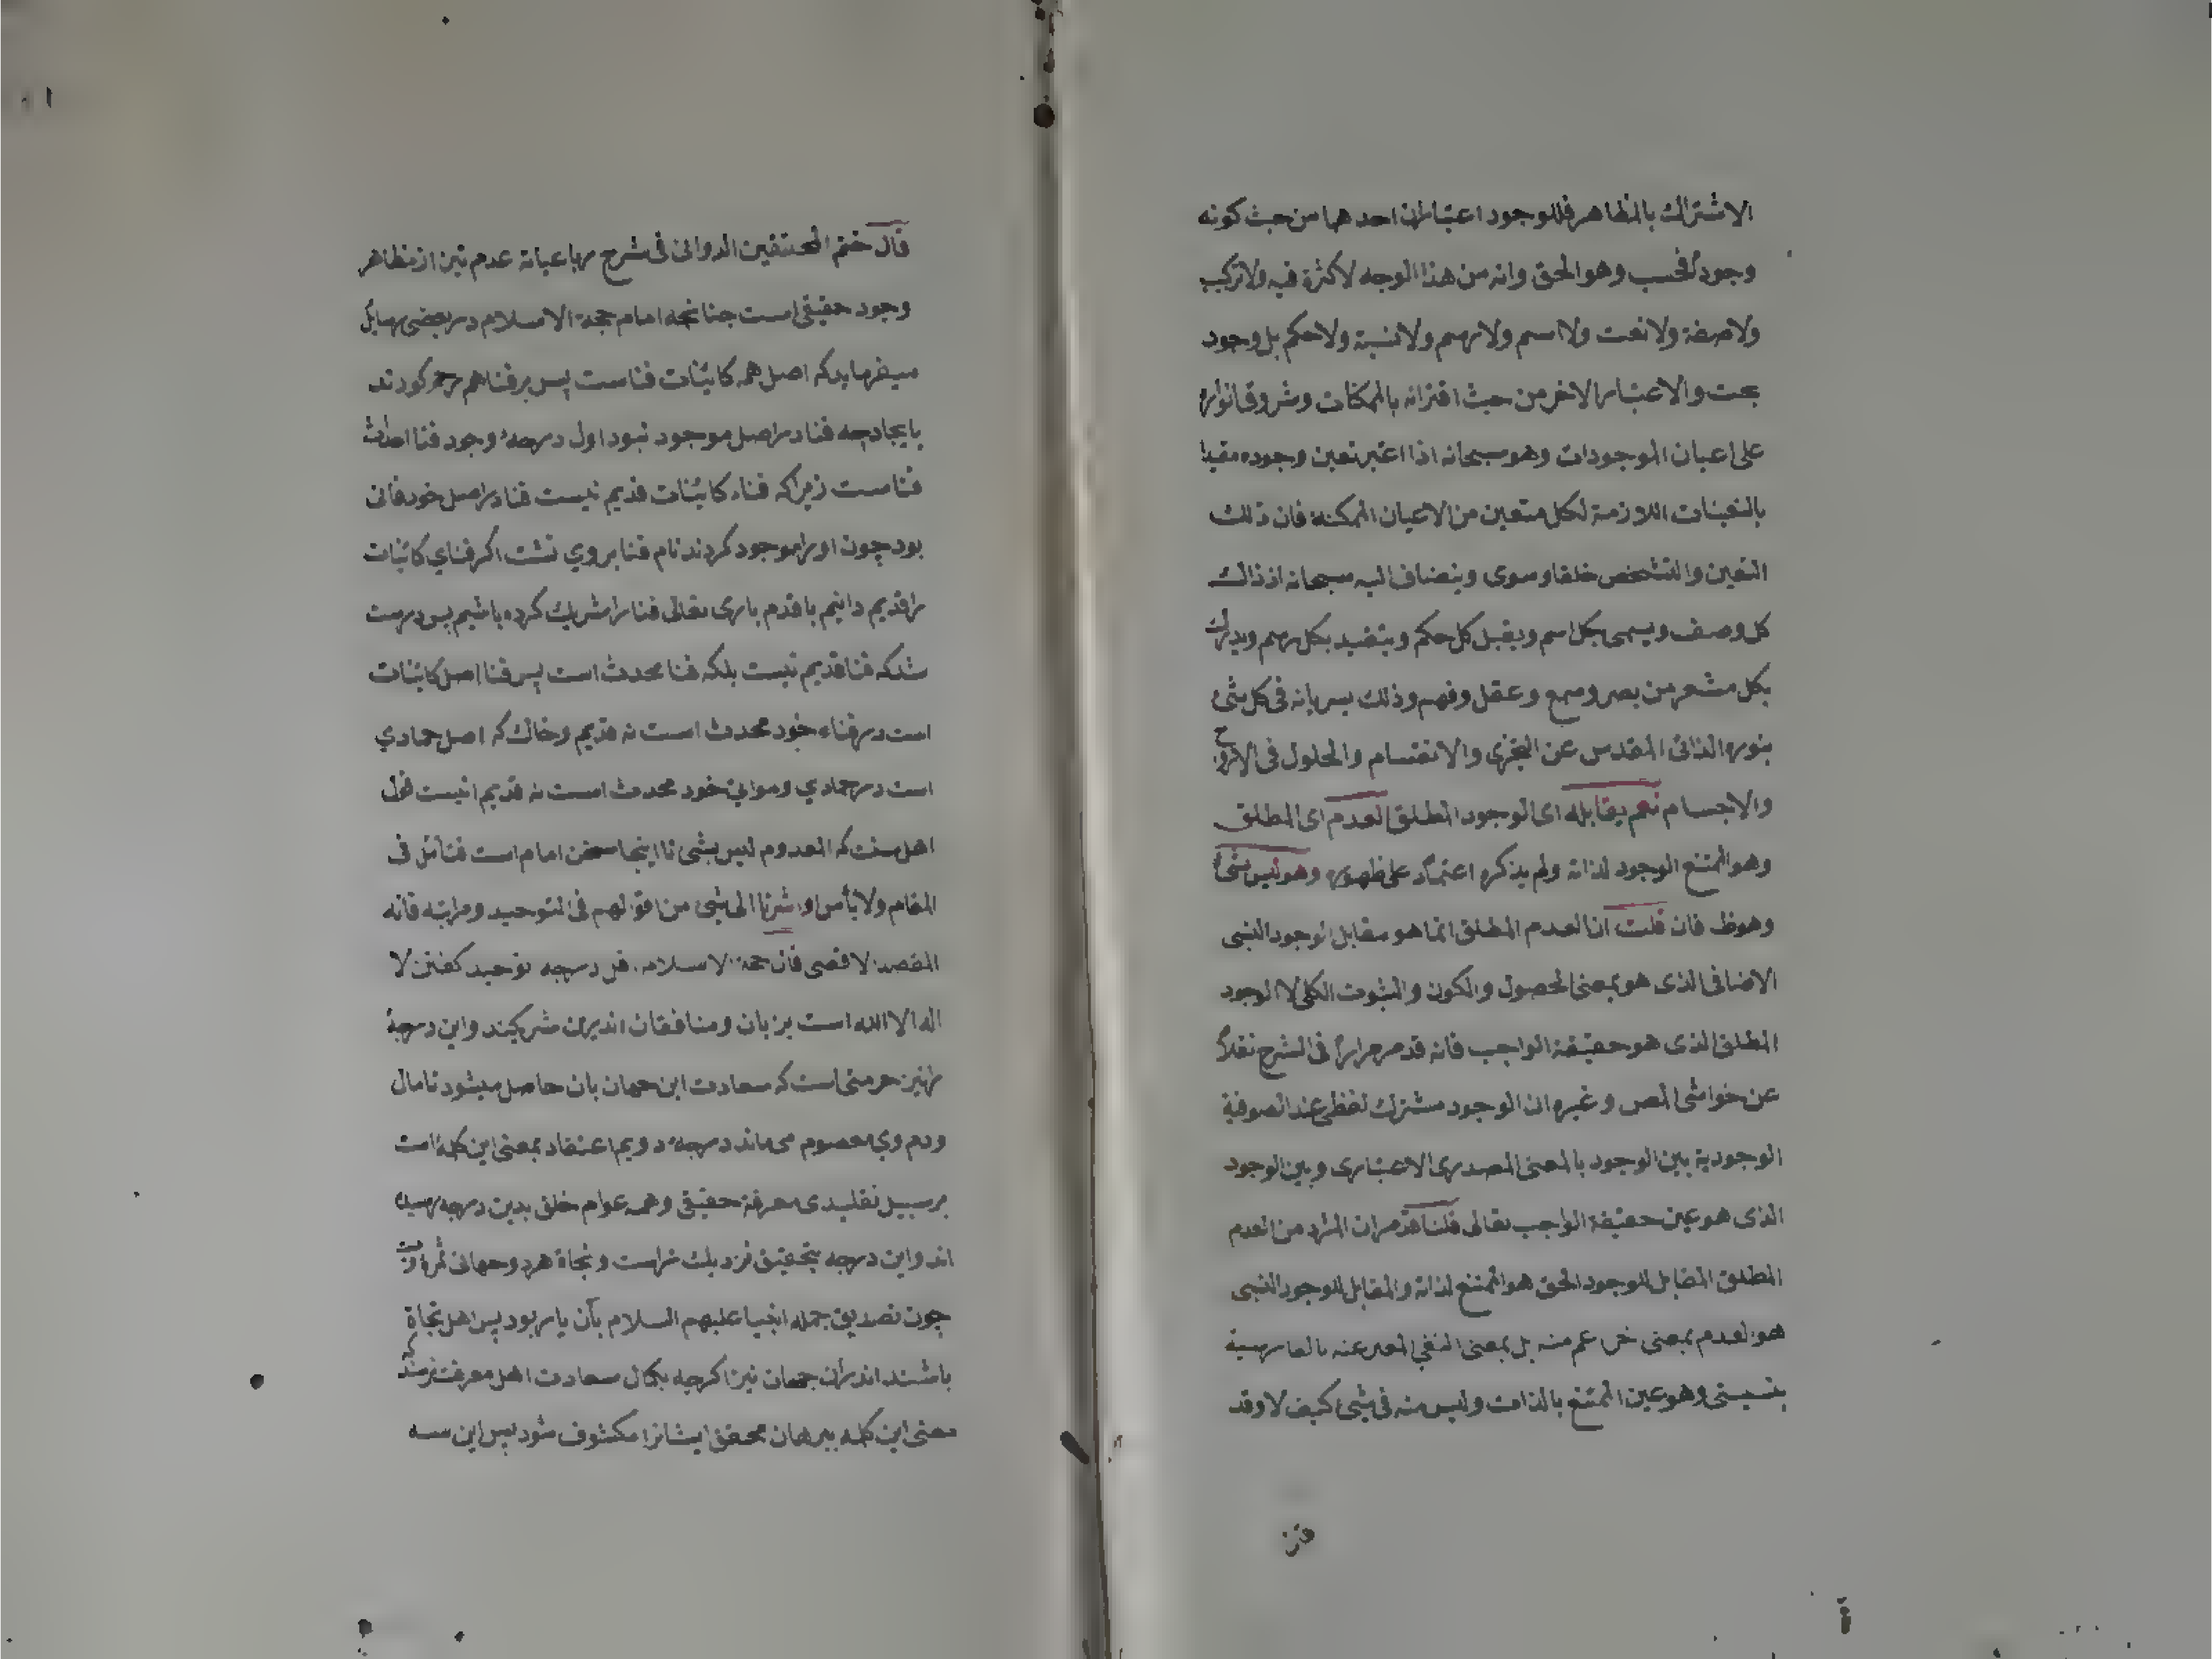 الاشتراك بالمظاهر فللوجود اعتباران احدهما من حيث كونه
وجودًا فحسب وهو الحق وانه من هذا الوجه لا كثرة فيه ولا تركيب
ولا صفة ولا نعت ولا اسم ولا رسم ولا نسبة ولا حكم بل وجود
بحت والاعتبار الاخر من حيث اقترانه بالممكنات وشروق انواره
على اعيان الموجودات وهو سبحانه اذا اعتبر تعين وجوده مقيدا
بالتعينات اللازمة لكل متعين من الاعيان الممكنة فان ذلك
التعين والتشخص خلقا وسوى وينضاف اليه سبحانه اذ ذاك
كل وصف ويسمى بكل اسم ويقبل كل حكم ويتقيد بكل رسم ويدرك
بكل مشعر من بصر وسمع وعقل وفهم وذلك بسريانه فى كل شئ
بنوره الذاتى المقدس عن التجزى والانقسام والحلول فى الارواح
والاجسام نعم يقابله اى الوجود المطلق العدم اى المطلق
وهو الممتنع الوجود لذاته ولم يذكره اعتمادًا على ظهوره وهو ليس بشئ
وهو ظ فان قلت ان العدم المطلق انما هو مقابل لوجود النسبى
الاضافى الذى هو بمعنى الحصول والكون والثبوت الكلى لا الوجود
المطلق الذى هو حقيقة الواجب فانه قد مر مرارًا فى الشرح نقلاً
عن حواشى المص وغيره ان الوجود مشترك لفظى عند الصوفية
الوجودية بين الوجود بالمعنى المصدرى الاعتبارى وبين الوجود
الذى هو عين حقيقة الواجب تعالى قلنا قد مر ان المراد من العدم
المطلق المقابل للوجود الحق هو الممتنع لذاته والمقابل للوجود النسبى
هو العدم بمعنى اعم منه بل بمعنى النفي المعبر عنه بالفارسية
بنيستى وهو عين الممتنع بالذات وليس منه فى شئ كيف لا وقد
قال ختم المحققين الدوانى فى شرح رباعياته عدم نيز از مظاهر
وجود حقيقى است چنانچه امام حجة الاسلام در بعضى رسايل
ميفرمايد كه اصل همه كاينات فناست پس بر فنا هم رحم كردند
بايجاد چه فنا در اصل موجود نبود اول درجهٔ وجود فنا احداث
فناست زيرا كه فناء كاينات قديم نيست فنا در اصل خود فانى
بود چون اورا موجود كردند نام فنا بروي نشت اكر فناي كاينات
را قديم دانيم با قدم بارى تعالى فنا را شريك كرده باشيم پس درست
شد كه فنا قديم نيست بلكه فنا محدث است پس فنا اصل كاينات
است در فناء خود محدث است نه قديم وخاك كه اصل جمادي
است در جمادي ومواتى خود محدث است نه قديم اينست قول
اهل سنت كه المعدوم ليس بشئ تا اينجا سخن امام است فتأمل فى
المقام ولا بأس لو اشرنا الى شئ من اقوالهم فى التوحيد ومراتبه فانه
المقصد الاقصى قال حجة الاسلام درجه توحيد كفتن لا
اله الا الله است بزبان ومنافقان اندرين مشركيند واين درجهٔ
را نيز حرمتى است كه سعادت اين جهان بان حاصل ميشود تا مال
ودم وي معصوم مى ماند درجهٔ دويم اعتقاد بمعنى اين كلمه است
بر سبيل تقليد ى معرفة حقيقى وهمه عوام خلق بدين درجه رسيده
اند واين درجه بتحقيق نزديك تراست ونجاة هر دو جهانى ثمرهٔ اوست
چون تصديق جمله انبيا عليهم السلام بآن يار بود پس اهل نجاة
باشند اندران جهان نيز اكرچه بكمال سعادت اهل معرفت نرسند كه
معنى اين كلمه ببرهان محقق ايشانرا مكشوف شود پس اين سه